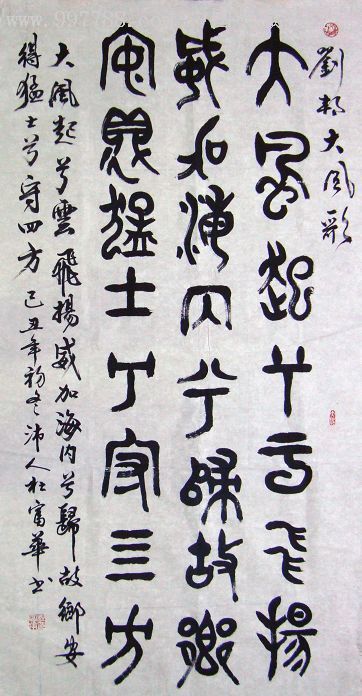 劉邦大风歌
大風起兮云飛揚
威加海内兮歸故鄉
安得猛士兮守四方
大風起兮雲飛揚威加海内兮歸故鄉安
得猛士兮守四方 己丑年初冬沛人杜富華书